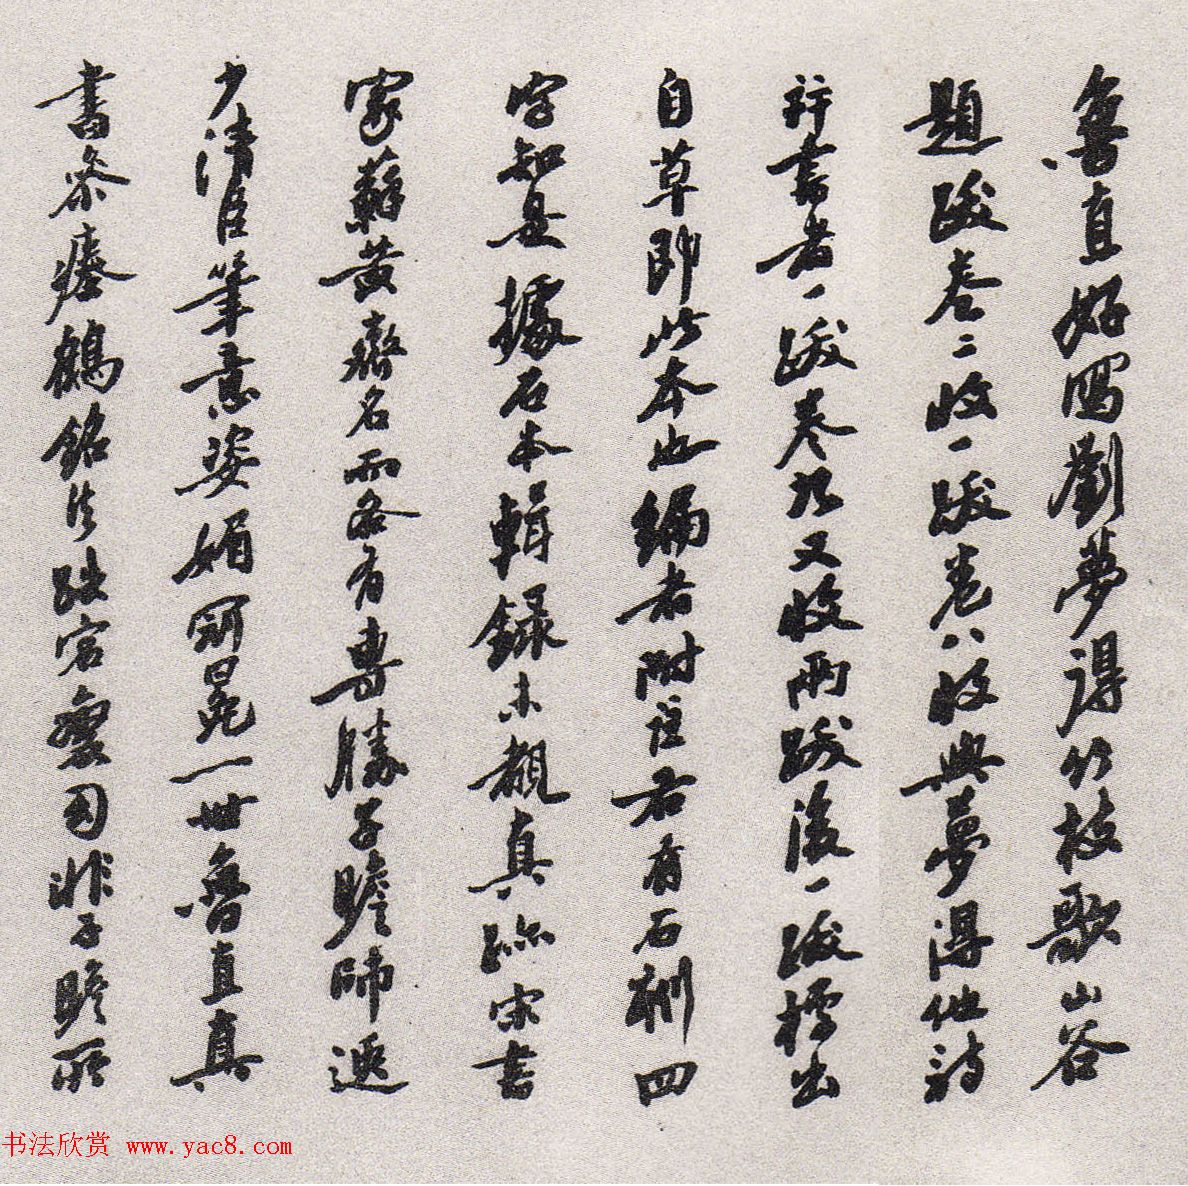 魯直好寫劉夢得竹枝歌山谷
題跋卷二收一跋卷八收與夢得他詩
行書者一跋卷九又收兩跋後一跋標出
自草即此本也編者附注云有石刻四
字知是據石本輯錄未覩真跡宋書
家蘇黃齊名而各有專勝子瞻師遜
少清臣筆意姿媚可冕一世魯直真
書参瘞鶴銘法跌宕奧因非子瞻所
书法欣赏 www.yac8.com